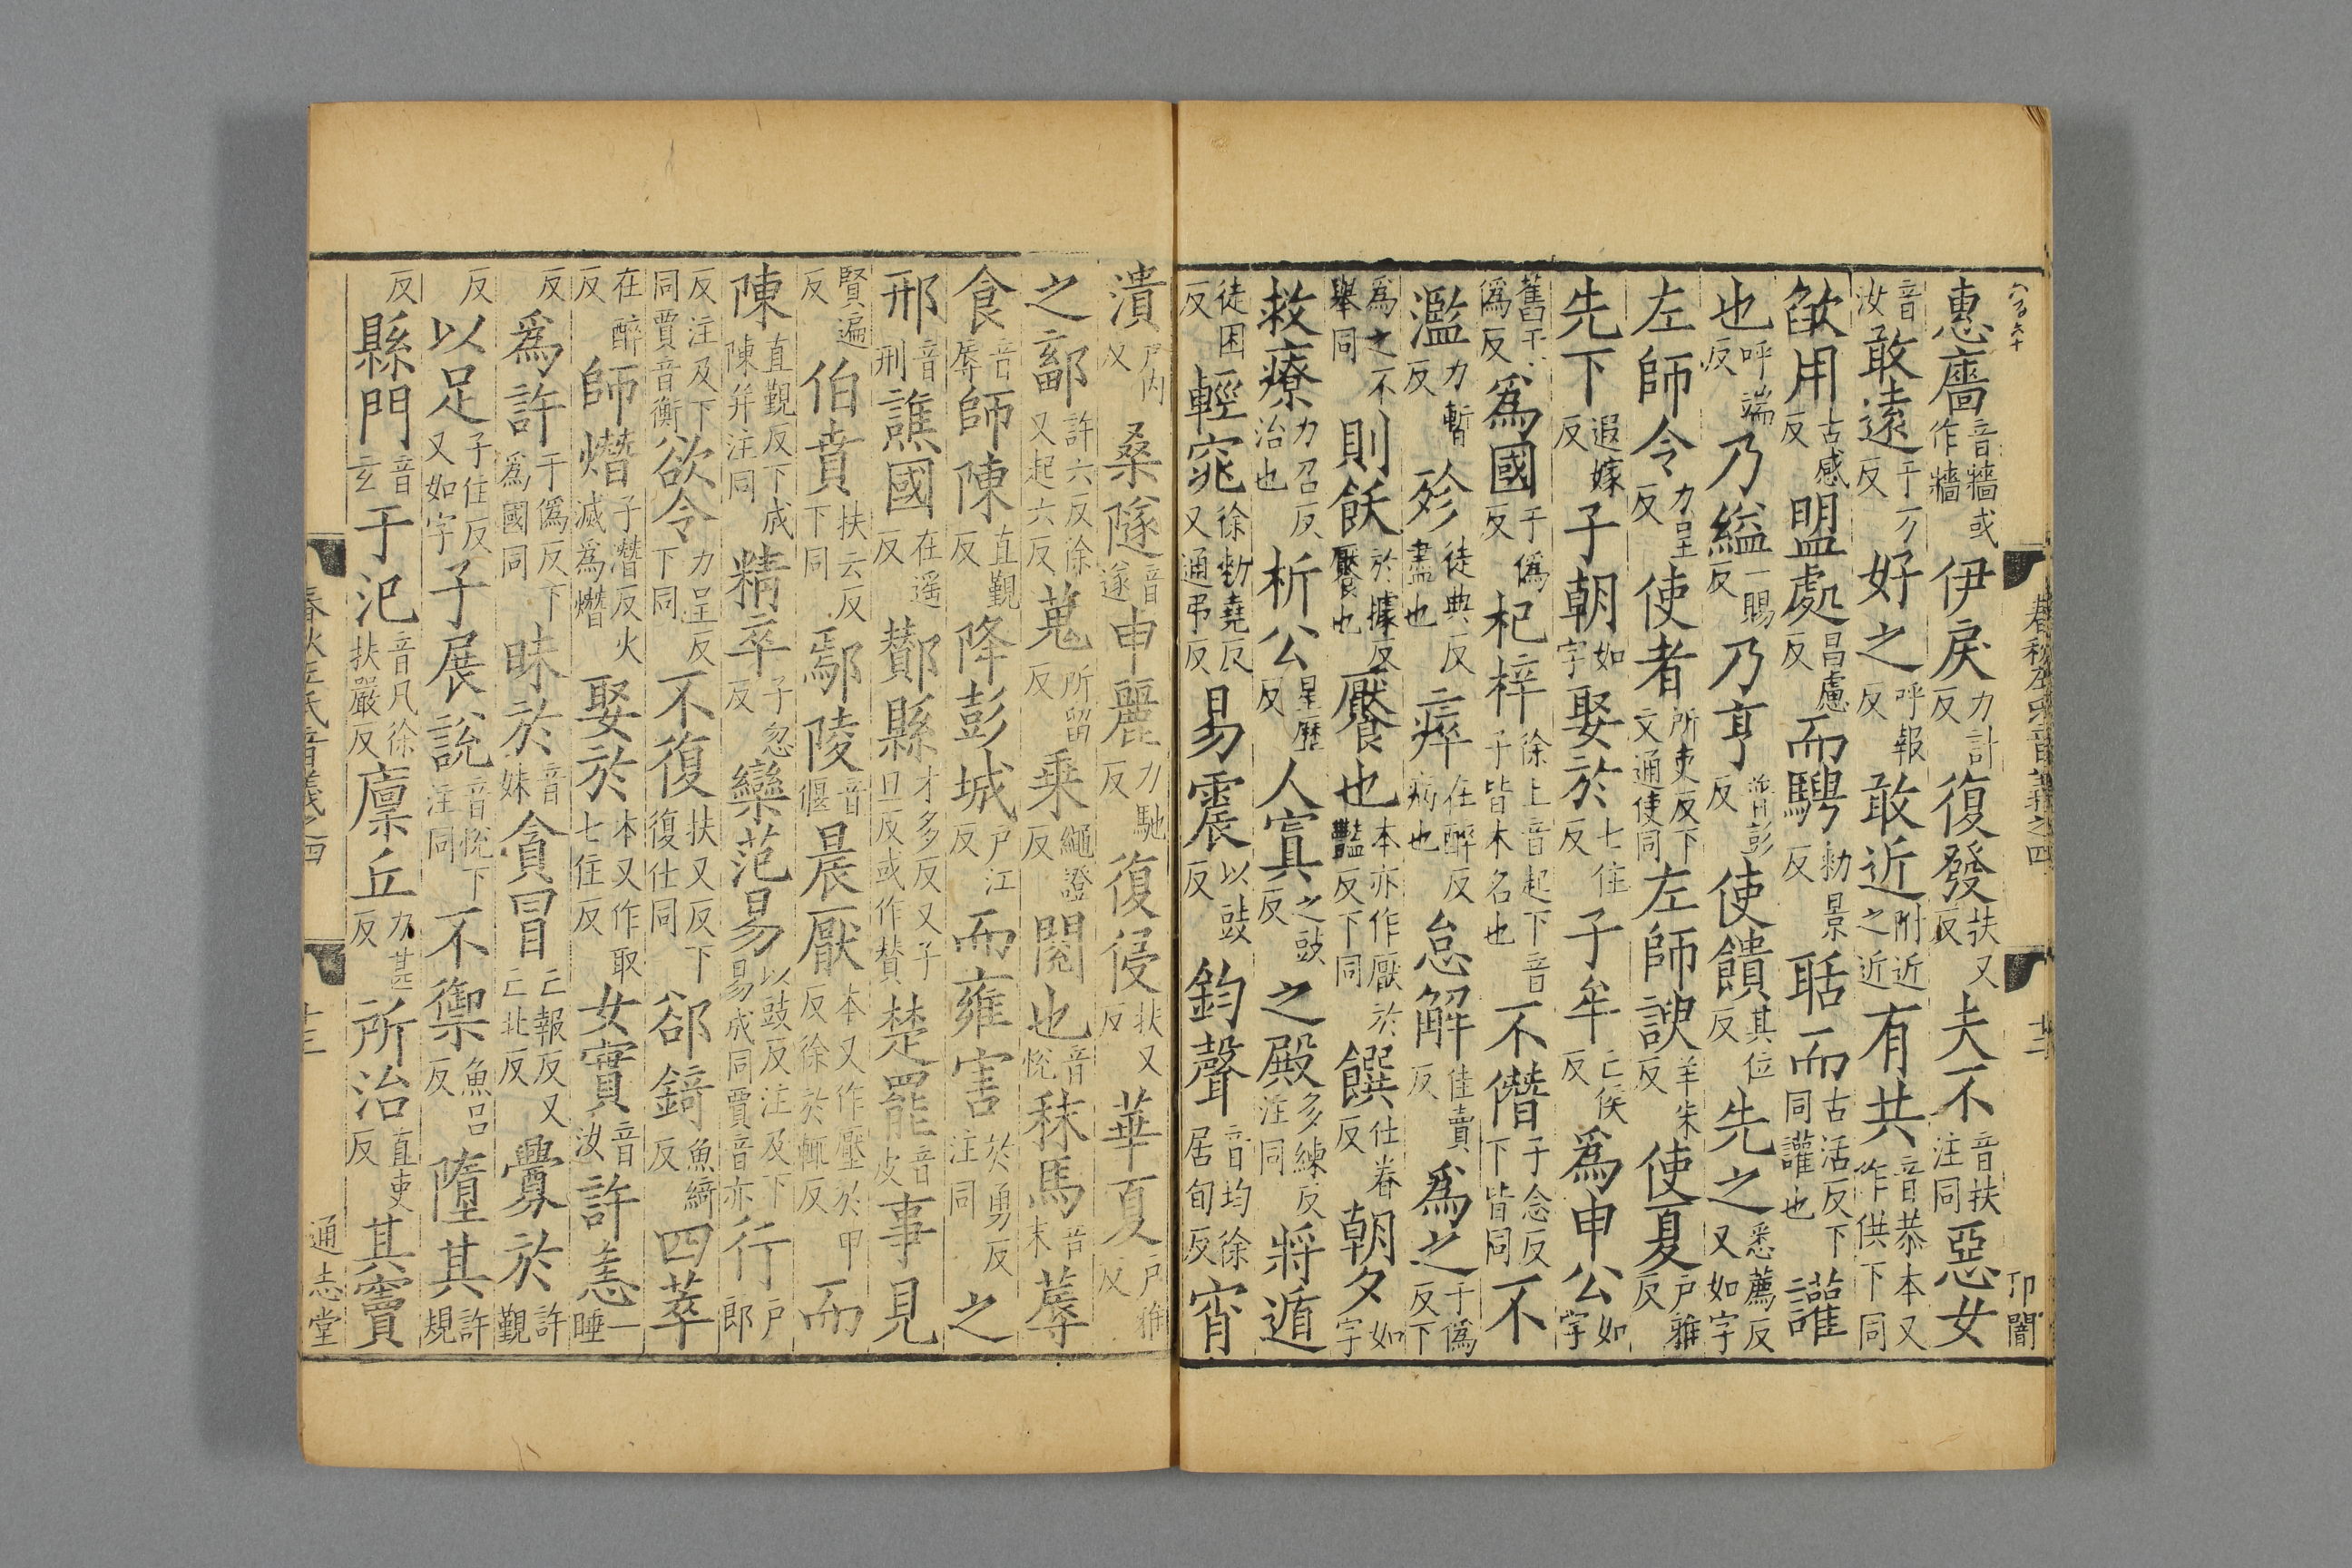 惠牆音牆或作牆伊戾力計反復發扶又反夫不音扶注同惡女
音汝敢遠于万反好之呼報反敢近附近之近有共音恭本又作供下同
欿用古感反盟處昌慮反而騁勑景反聒而古活反下同讙也讙
也呼端反乃縊一賜反乃亨普彭反使饋其位反先之悉薦反又如字
左師令力呈反使者所吏反下文通使同左師諛羊朱反使夏戶雅反
先下遐嫁反子朝如字娶於七住反子牟亡侯反為申公如字
舊于偽反為國于偽反杞梓徐上音起下音子皆木名也不僭子念反下皆同不
濫力暫反殄徒典反盡也瘁在醉反病也怠解佳賣反為之于偽反下
為之不舉同則飫於據反饜也饜也本亦作厭於豔反下同饌仕眷反朝夕如字
救療力召反治也析公星歷反人寘之豉反之殿多練反注同將遁
徒困反輕窕徐勑堯反又通弔反易震以豉反鈞聲音均徐居旬反宵
潰戶內反桑隧音遂申麗力馳反復侵扶又反華夏戶雅反
之鄐許六反徐又起六反蒐所留反乘繩證反閱也音悅秣馬音末蓐
食音辱師陳直覲反降彭城戶江反而雍害於勇反注同之
邢音刑譙國在遥反酇縣才多反又子旦反或作贊楚罷音皮事見
賢遍反伯賁扶云反下同鄢陵音偃晨厭本又作壓於甲反徐於輒反而
陳直覲反下成陳并注同精卒子忽反欒范易以豉反注及下易成同賈音亦行戶郎
反注及下同賈音衡欲令力呈反下同不復扶又反下復仕同郤錡魚綺反四萃
在醉反師熸子潛反火滅為熸娶於本又作取七住反女實音汝許恚一睡
反為許于偽反下為國同昧於音妹貪冒亡報反又亡北反釁於許覲
反以足子住反又如字子展說音悅下注同不禦魚呂反隋其許規
反縣門音玄于氾音凡徐扶嚴反廩丘力甚反所治直吏反其竇
春秋左氏音義之四
十三
通志堂